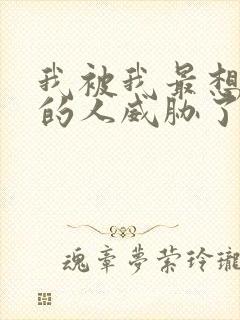 我被我最想
的人威胁了
魂牵梦萦玲珑